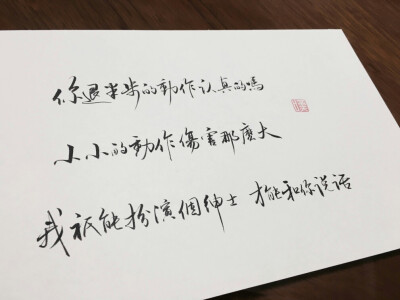 你退半步的動作认真的嗎
小小的動作傷害那麼大
我祇能扮演個绅士 才能和你说话